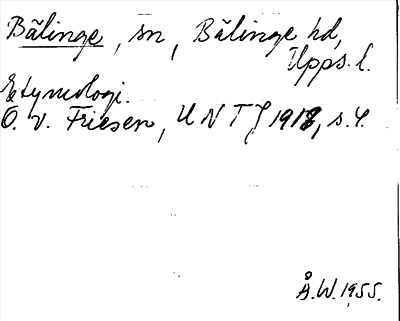 Bälinge, sn, Bälinge hd,
Upps. l.
Etymologi.
O. v. Friesen, UNT J 1918, s. 4.
Å.W. 1955.